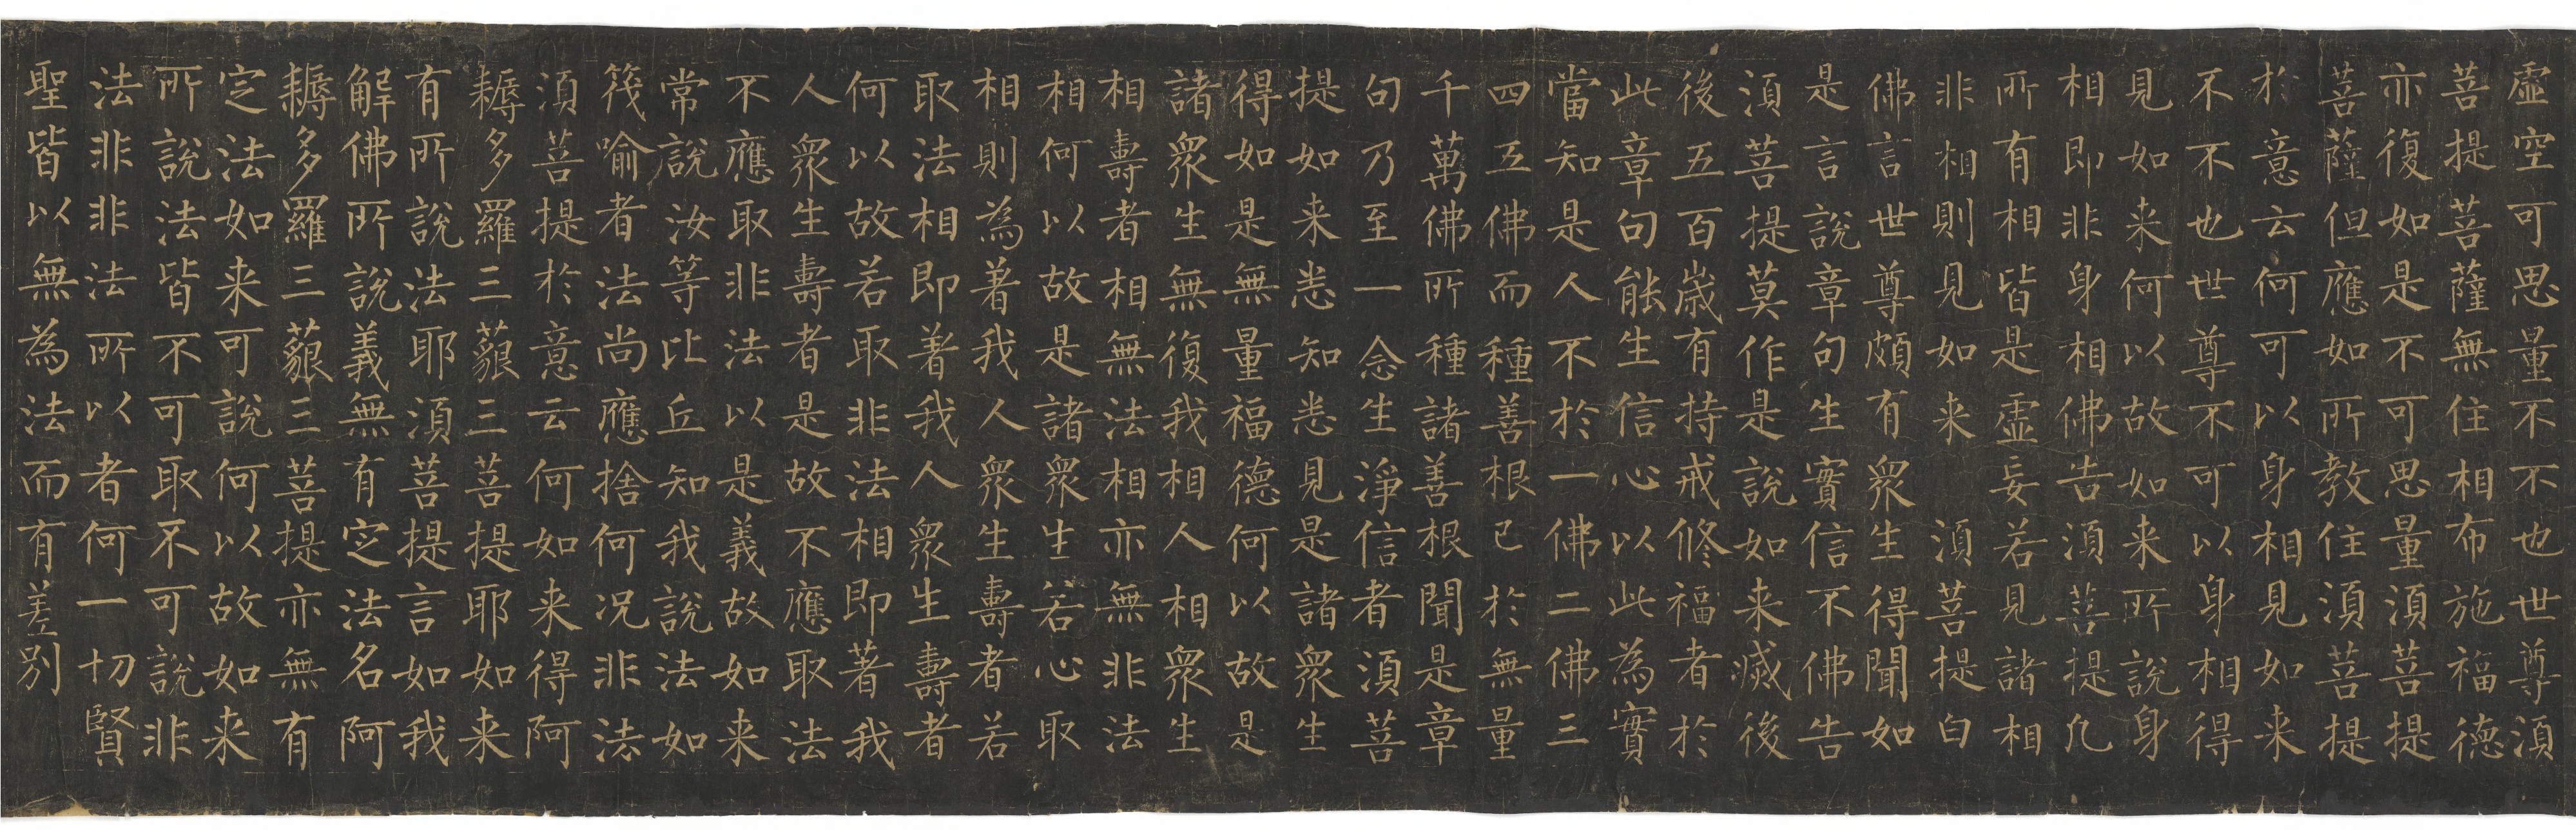 虛空可思量不不也世尊須
菩提菩薩無住相布施福德
亦復如是不可思量須菩提
菩薩但應如所教住須菩提
於意云何可以身相見如来
不不也世尊不可以身相得
見如来何以故如来所說身
相即非身相佛告須菩提凡
所有相皆是虛妄若見諸相
非相則見如来 須菩提白
佛言世尊頗有衆生得聞如
是言說章句生實信不佛告
須菩提莫作是說如来滅後
後五百歲有持戒修福者於
此章句能生信心以此為實
當知是人不於一佛二佛三
四五佛而種善根已於無量
千萬佛所種諸善根聞是章
句乃至一念生淨信者須菩
提如来悉知悉見是諸衆生
得如是無量福德何以故是
諸衆生無復我相人相衆生
相壽者相無法相亦無非法
相何以故是諸衆生若心取
相則為著我人衆生壽者若
取法相即著我人衆生壽者
何以故若取非法相即著我
人衆生壽者是故不應取法
不應取非法以是義故如来
常說汝等比丘知我說法如
筏喻者法尚應捨何況非法
須菩提於意云何如来得阿
耨多羅三藐三菩提耶如来
有所說法耶須菩提言如我
解佛所說義無有定法名阿
耨多羅三藐三菩提亦無有
定法如来可說何以故如来
所說法皆不可取不可說非
法非非法所以者何一切賢
聖皆以無為法而有差別